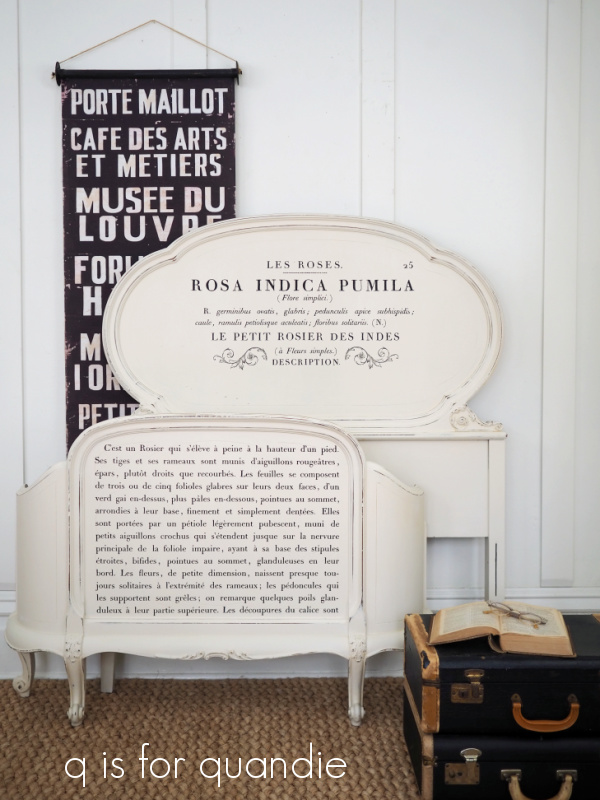 PORTE MAILLOT
CAFE DES ARTS
ET METIERS
MUSEE DU
LOUVRE
FOR
H
M
PETIT
LES ROSES. 25
ROSA INDICA PUMILA
(Flore simplici.)
R. germinibus ovatis, glabris; pedunculis apice subhispidis;
caule, ramulis petiolisque aculeatis; floribus solitariis. (N.)
LE PETIT ROSIER DES INDES
(à Fleurs simples.)
DESCRIPTION.
C'est un Rosier qui s'élève à peine à la hauteur d'un pied.
Ses tiges et ses rameaux sont munis d'aiguillons rougeâtres,
épars, plutôt droits que recourbés. Les feuilles se composent
de trois ou de cinq folioles glabres sur leurs deux faces, d'un
verd gai en-dessus, plus pâles en-dessous, pointues au sommet,
arrondies à leur base, finement et simplement dentées. Elles
sont portées par un pétiole légèrement pubescent, muni de
petits aiguillons crochus qui s'étendent jusque sur la nervure
principale de la foliole impaire, ayant à sa base des stipules
étroites, bifides, pointues au sommet, glanduleuses en leur
bord. Les fleurs, de petite dimension, naissent presque tou-
jours solitaires à l'extrémité des rameaux; les pédoncules qui
les supportent sont grêles; on remarque quelques poils glan-
duleux à leur partie supérieure. Les découpures du calice sont
q is for quandie